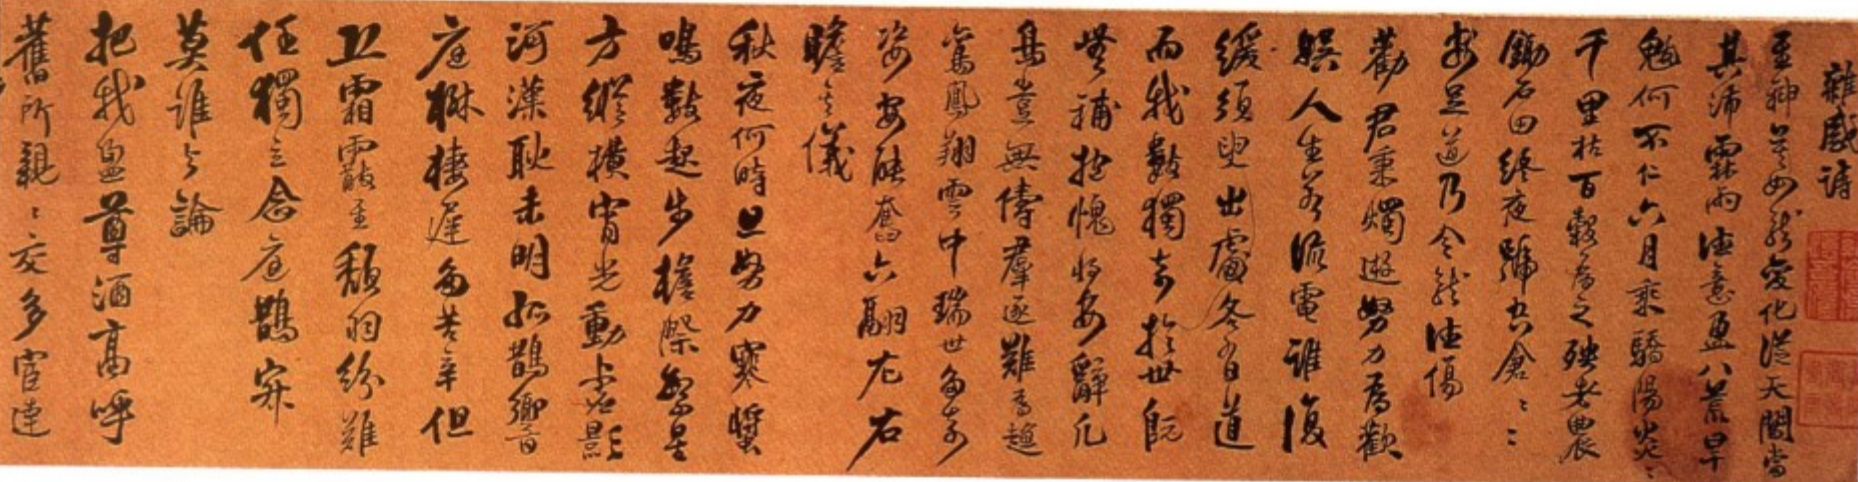 雜感詩
至神莫如龍變化從天闔當
其沛霖雨浹意盈八荒旱
魃何不仁六月乘驕陽炎〻
千里枯百穀為之殃老農
鋤石田終夜號穹倉〻〻
勸君秉燭遊努力為歡
娛人生若流電誰復
緩須臾出處各有道
而我數獨奇於世既
無補抱愧將安辭凡
鳥豈無儔羣逐難為趨
鸞鳳翔雲中瑞世多奇
姿安能奮六翮左右
瞻令儀
秋夜何時旦努力寒螿
鳴數起步檐際繁星
方縱橫宵光動虛影
河漢耿未明孤鵲鄉昏
庭樹棲遲多苦辛但
恐霜霰至頹羽紛難
任獨立念庭鵲寂
莫誰與論
把我盈尊酒高呼
舊所親〻交多宦達